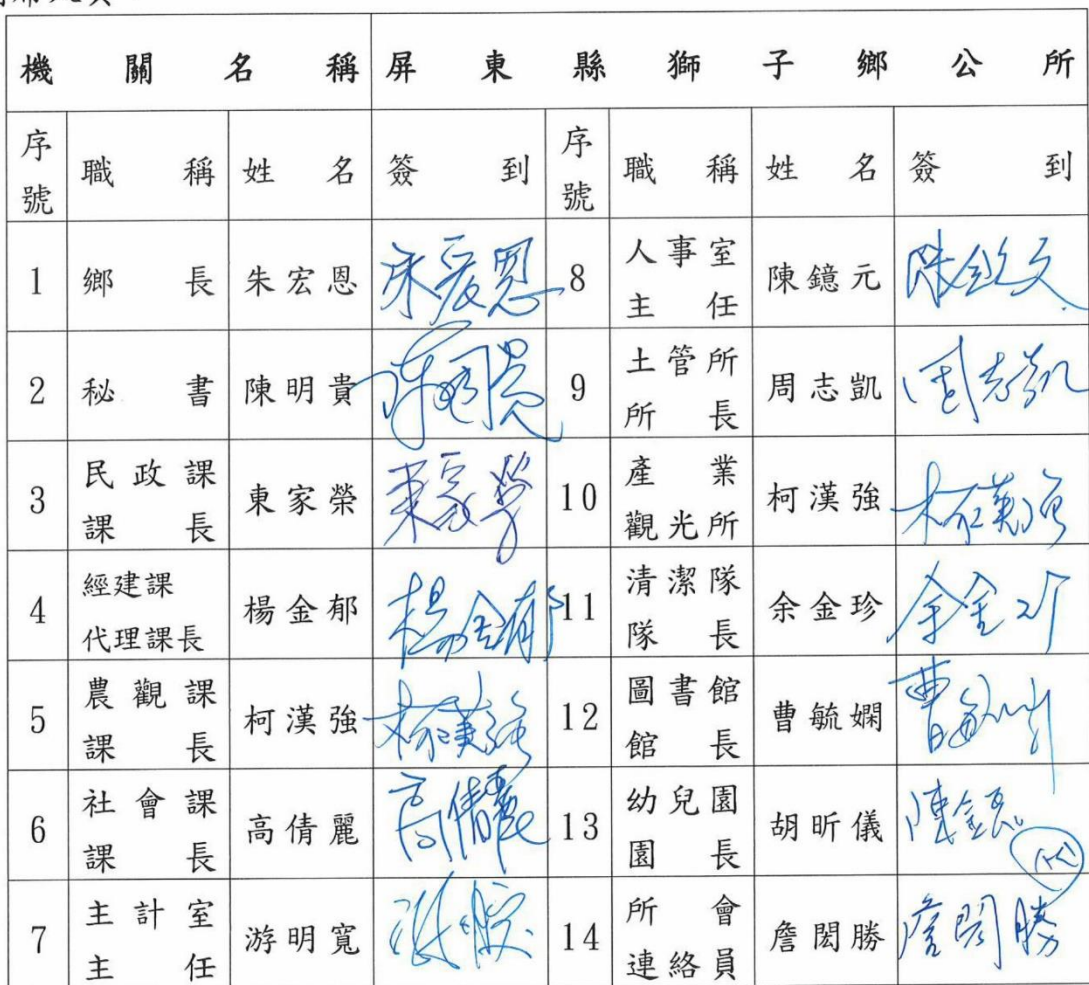 機關名稱 屏東縣獅子鄉公所
序號 職稱 姓名 簽到 序號 職稱 姓名 簽到
1 鄉長 朱宏恩 朱宏恩 8 人事室主任 陳鐿元
2 秘書 陳明貴 9 土管所所長 周志凱 周志凱
3 民政課課長 東家榮 東家榮 10 產業觀光所 柯漢強 柯漢強
4 經建課代理課長 楊金郁 楊金郁 11 清潔隊隊長 余金珍 余金珍
5 農觀課課長 柯漢強 柯漢強 12 圖書館館長 曹毓嫻 曹毓嫻
6 社會課課長 高倩麗 高倩麗 13 幼兒園園長 胡昕儀 (代)
7 主計室主任 游明寬 14 所會連絡員 詹閎勝 詹閎勝